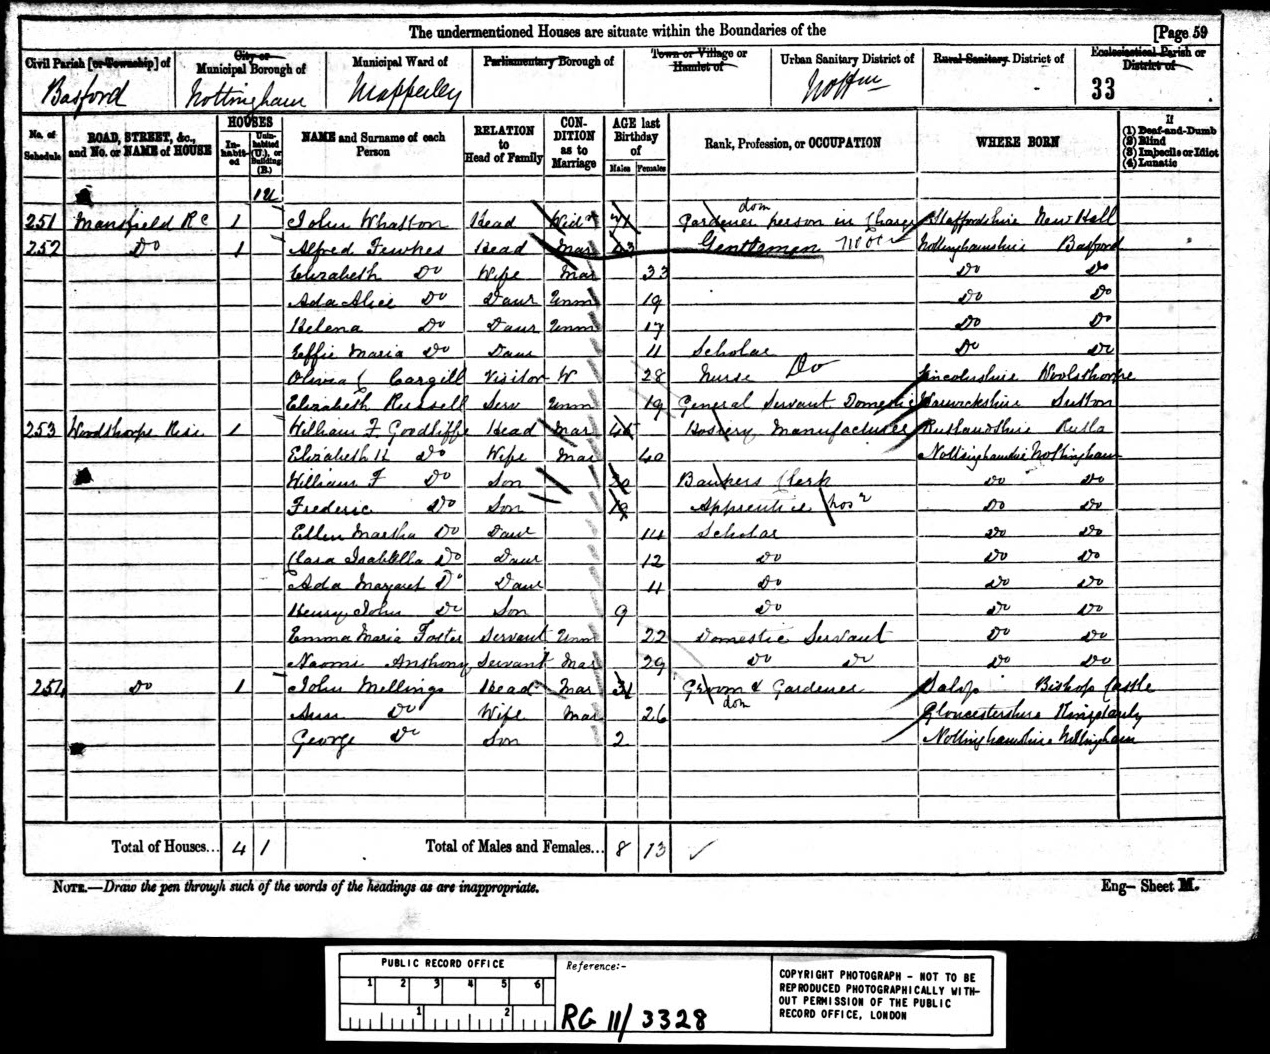 The undermentioned Houses are situate within the Boundaries of the [Page 59
Civil Parish [or Township] of City or Municipal Borough of Municipal Ward of Parliamentary Borough of Town or Village or Hamlet of Urban Sanitary District of Rural Sanitary District of Ecclesiastical Parish or District of
Basford Nottingham Mapperley Nottm 33
No. of Schedule ROAD, STREET, &c., and No. or NAME of HOUSE HOUSES In-habit-ed Unin-habited (U.), or Building (B.) NAME and Surname of each Person RELATION to Head of Family CON-DITION as to Marriage AGE last Birthday of Males Females Rank, Profession, or OCCUPATION WHERE BORN If (1) Deaf-and-Dumb (2) Blind (3) Imbecile or Idiot (4) Lunatic
1U
251 Mansfield Rd 1 John Whatton Head Widr 71 Gardener dom person in charge Staffordshire New Hall
252 Do 1 Alfred Fewkes Head Mar 43 Gentleman Nottinghamshire Basford
Elizabeth Do Wife Mar 33 Do Do
Ada Alice Do Daur Unm 19 Do Do
Helena Do Daur Unm 17 Do Do
Effie Maria Do Daur 11 Scholar Do Do
Olivia Cargill Visitor W 28 Nurse Do Lincolnshire Woolsthorpe
Elizabeth Russell Serv Unm 19 General Servant Domestic Warwickshire Sutton
253 Woodsthorpe Rise 1 William F Goodliffe Head Mar 45 Hosiery Manufacturer Rutlandshire
Elizabeth H Do Wife Mar 40 Nottinghamshire Nottingham
William F Do Son Bankers Clerk Do Do
Frederic Do Son Apprentice hosr Do Do
Ellen Martha Do Daur 14 Scholar Do Do
Clara Isabella Do Daur 12 Do Do Do
Ada Margaret Do Daur 11 Do Do Do
Henry John Do Son 9 Do Do Do
Emma Maria Foster Servant Unm 22 Domestic Servant Do Do
Naomi Anthony Servant Mar 29 Do Do Do Do
254 Do 1 John Mellings Head Mar 31 Groom & Gardener Salop Bishop Castle
Ann Do Wife Mar 26 dom Gloucestershire
George Do Son 2 Nottinghamshire Nottingham
Total of Houses... 4 1 Total of Males and Females... 8 13
NOTE.—Draw the pen through such of the words of the headings as are inappropriate. Eng— Sheet M.
PUBLIC RECORD OFFICE
1 2 3 4 5 6
1 2
Reference:-
RG 11/3328
COPYRIGHT PHOTOGRAPH - NOT TO BE
REPRODUCED PHOTOGRAPHICALLY WITH-
OUT PERMISSION OF THE PUBLIC
RECORD OFFICE, LONDON